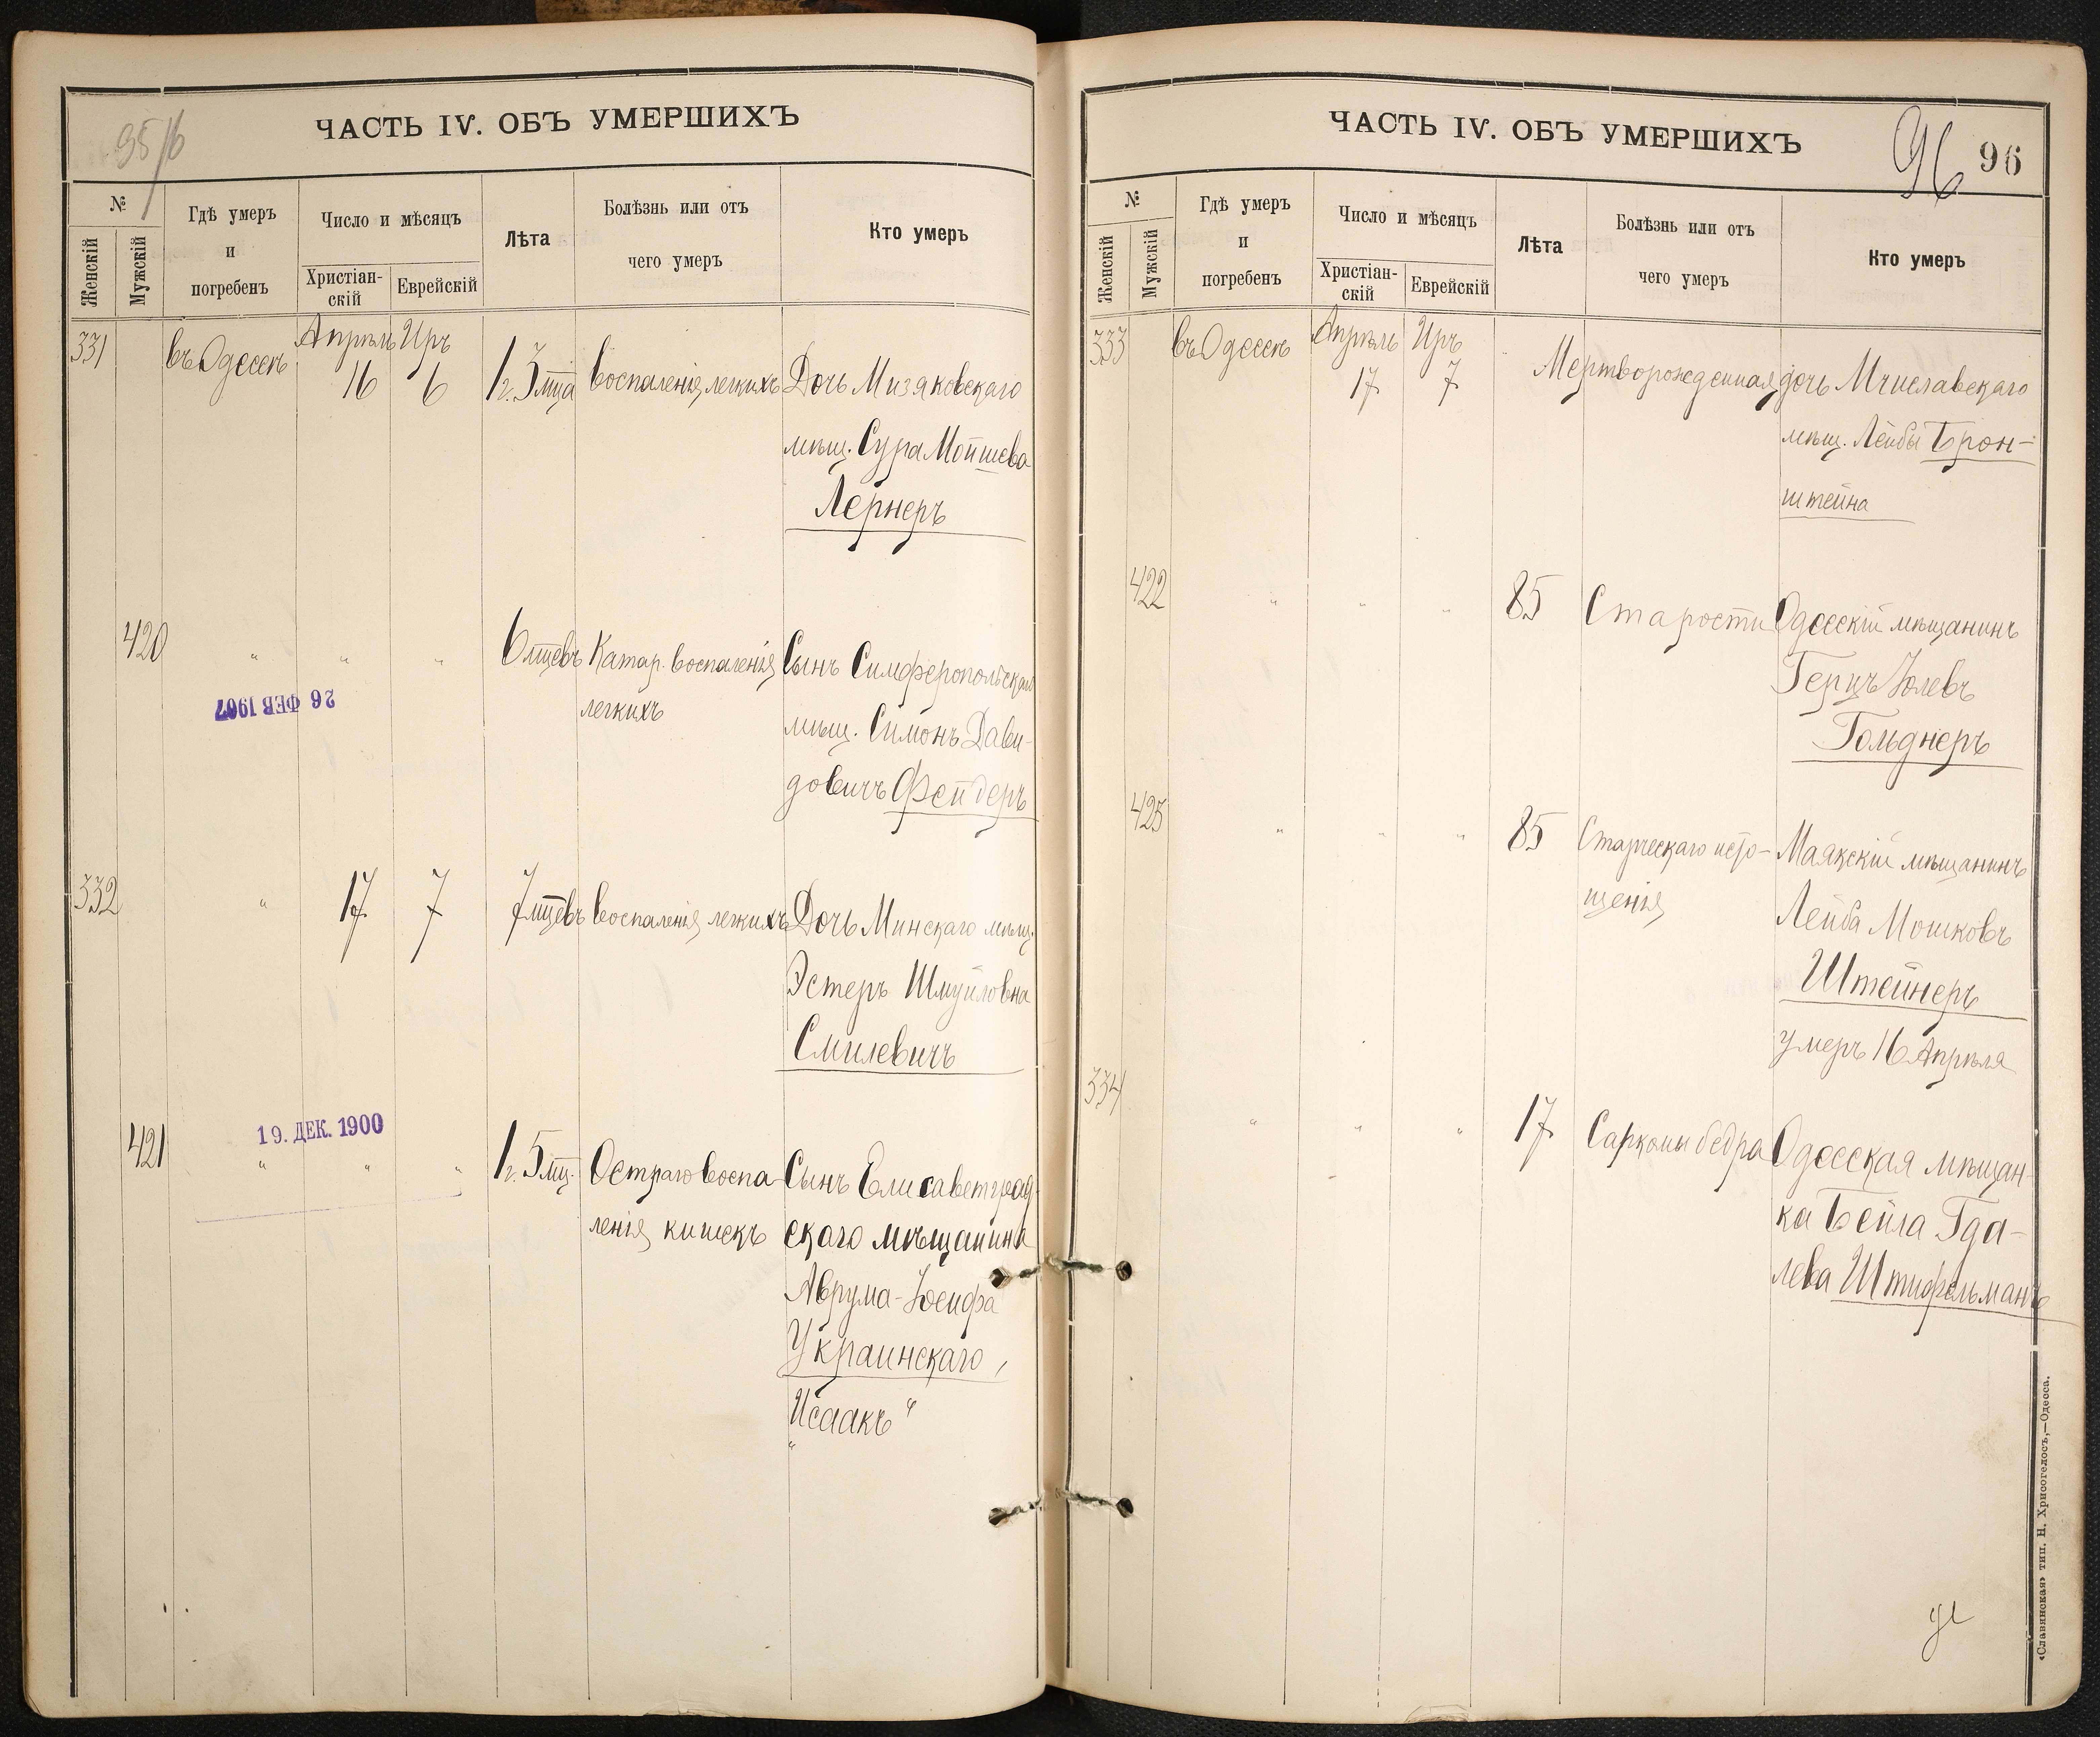 95/16
ЧАСТЬ IV. ОБЪ УМЕРШИХЪ
№
Женскій
Мужскій
Гдѣ умеръ
и
погребенъ
Число и мѣсяцъ
Христіан-
скій
Еврейскій
Лѣта
Болѣзнь или отъ
чего умеръ
Кто умеръ
331 въ Одессѣ Апрѣль Иръ
16 6 1 г. 3 мца воспаленія легкихъ Дочь Мизяковскаго
мѣщ. Сура Мойшева
Лернеръ
420 " " " 6 мцевъ Катар. воспаленія Сынъ Симферопольскаго
легкихъ мѣщ. Симонъ Дави-
довичъ Фейдеръ
26 ФЕВ 1907
332 " 17 7 7 мцевъ воспаленія легкихъ Дочь Минскаго мѣщ.
Эстеръ Шмуйловна
Смилевичъ
19. ДЕК. 1900
421 " " " 1 г. 5 мц. Остраго воспа- Сынъ Елисаветград-
ленія кишекъ скаго мѣщанина
Аврума-Іосифа
Украинскаго,
"Исаакъ"
ЧАСТЬ IV. ОБЪ УМЕРШИХЪ
96 96
№
Женскій
Мужскій
Гдѣ умеръ
и
погребенъ
Число и мѣсяцъ
Христіан-
скій
Еврейскій
Лѣта
Болѣзнь или отъ
чего умеръ
Кто умеръ
333 въ Одессѣ Апрѣль Иръ
17 7 Мертворожденная дочь Мчиславскаго
мѣщ. Лейбы Брон-
штейна
422 " " " 85 Старости Одесскій мѣщанинъ
Герцъ Іолевъ
Гольднеръ
425 " " " 85 Старческаго исто- Маякскій мѣщанинъ
щенія Лейба Мошковъ
Штейнеръ
умеръ 16 Апрѣля
334 " " " 17 Саркомы бедра Одесская мѣщан-
ка Бейла Гда-
лева Штифельманъ
«Славянская» тип. Н. Хрисогелосъ,—Одесса.